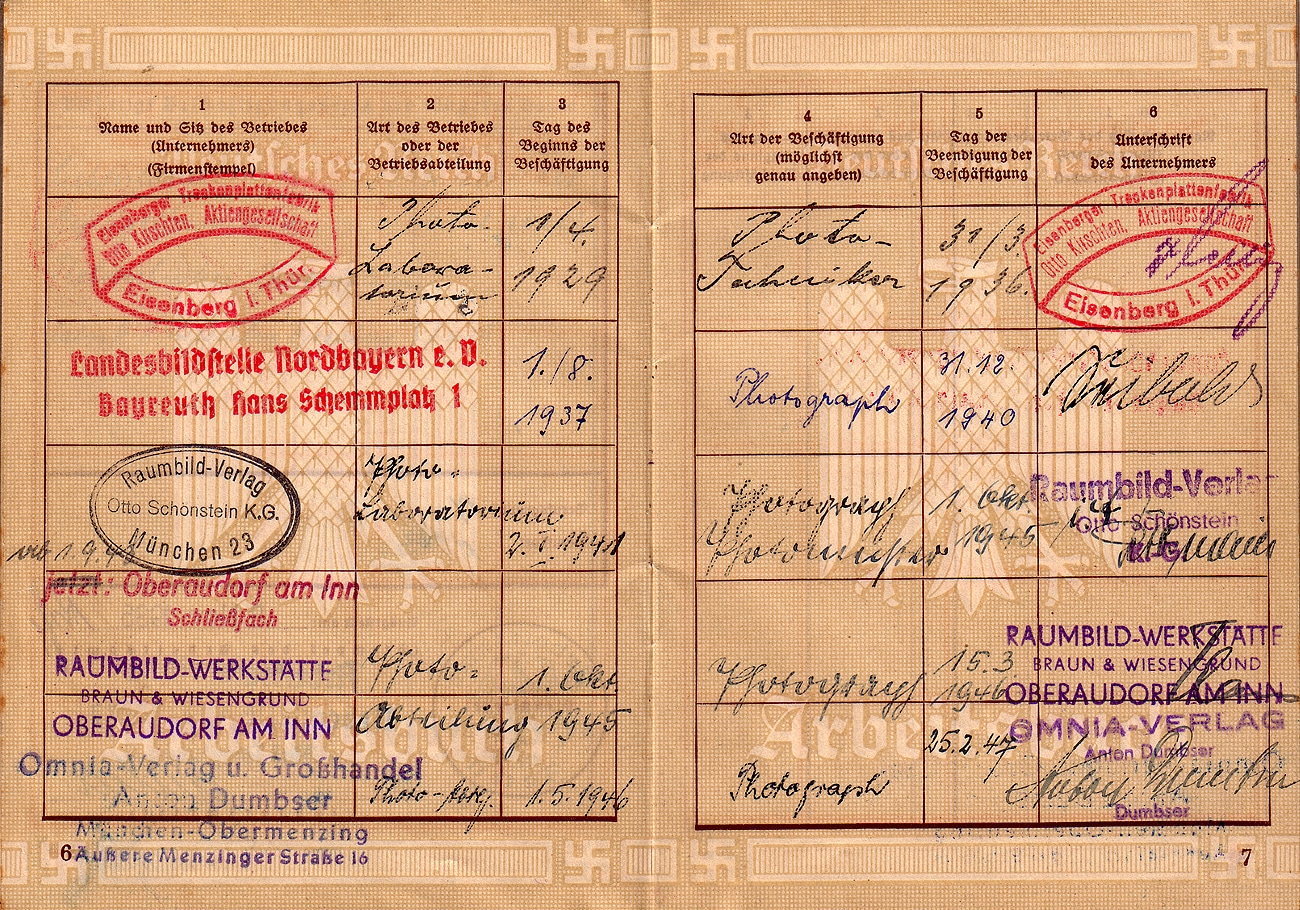 1
Name und Sitz des Betriebes
(Unternehmers)
(Firmenstempel)
2
Art des Betriebes
oder der
Betriebsabteilung
3
Tag des
Beginns der
Beschäftigung
Eisenberger Trockenplattenfabrik
Otto Kirschten, Aktiengesellschaft
Eisenberg i. Thür.
Photo-
Labora-
torium
1/4.
1929
Landesbildstelle Nordbayern e. V.
Bayreuth Hans Schemmplatz 1
1./8.
1937
Raumbild-Verlag
Otto Schönstein K.G.
München 23
Photo-
Laboratorium
2. 1. 1941
jetzt: Oberaudorf am Inn
Schließfach
RAUMBILD-WERKSTÄTTE
BRAUN & WIESENGRUND
OBERAUDORF AM INN
Photo-
Abteilung
1. Okt
1945
Omnia-Verlag u. Großhandel
Anton Dumbser
München-Obermenzing
Äußere Menzinger Straße 16
1. 5. 1946
6
4
Art der Beschäftigung
(möglichst
genau angeben)
5
Tag der
Beendigung der
Beschäftigung
6
Unterschrift
des Unternehmers
Photo-
Techniker
31/3.
1936.
Eisenberger Trockenplattenfabrik
Otto Kirschten, Aktiengesellschaft
Eisenberg i. Thür.
Photograph
31. 12.
1940
Photograph
Photomeister
1. Okt.
1945
Raumbild-Verla
Otto Schönstein
K.G.
Photograph
15. 3
1946
RAUMBILD-WERKSTÄTTE
BRAUN & WIESENGRUND
OBERAUDORF AM INN
Photograph
25. 2. 47
OMNIA-VERLAG
Anton Dumbser
Dumbser
7
Arbeitsbuch